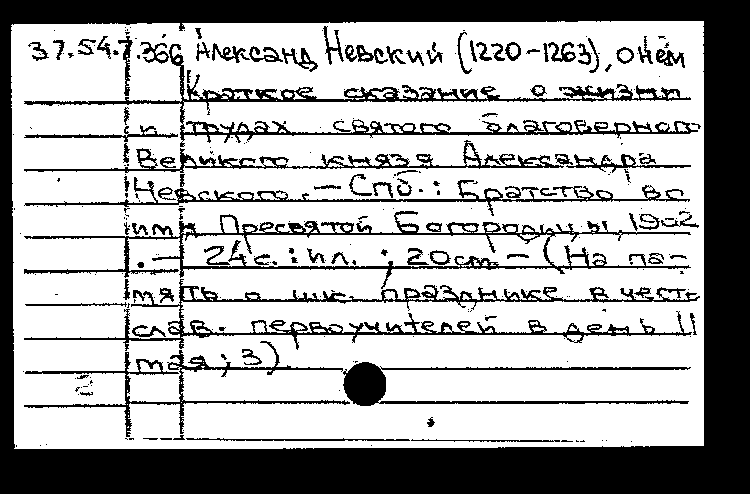 37.54.7.366 Александ Невский (1220-1263), о нём
Краткое сказание о жизни
и трудах святого благоверного
Великого князя Александра
Невского. - Спб. : Братство во
имя Пресвятой Богородицы, 1902
. - 24с. : ил. ; 20ст. - (На па-
мять о шк. празднике в честь
слав. первоучителей в день 11
мая ; 3).